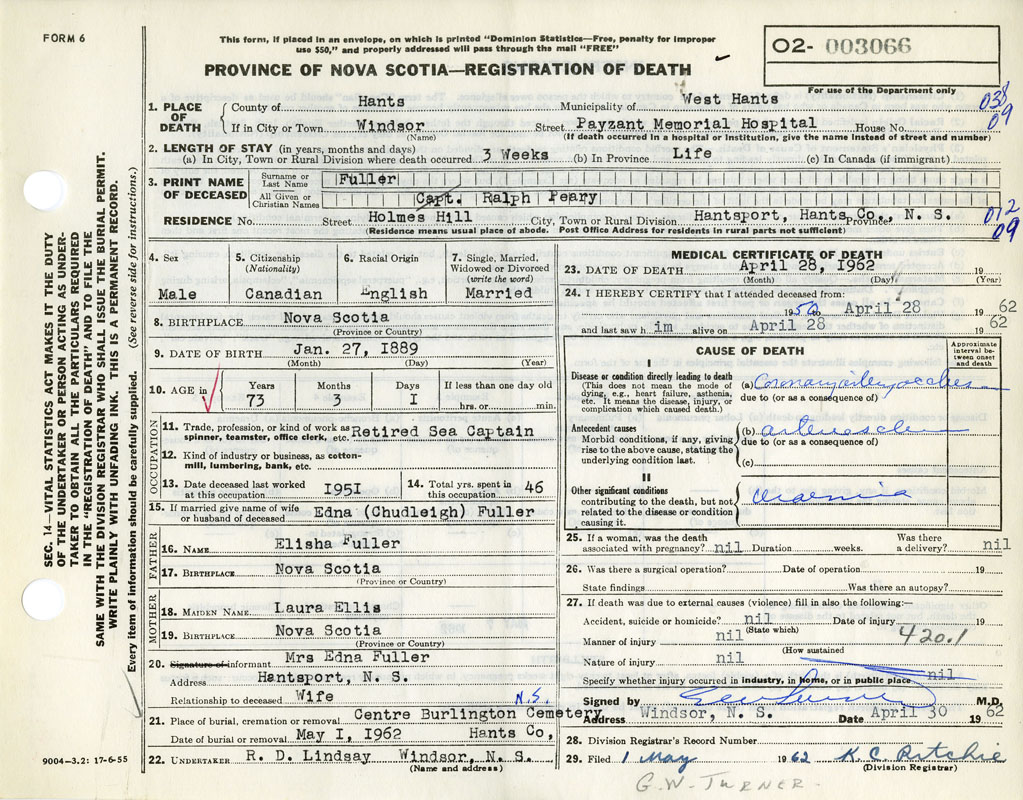 FORM 6
This form, if placed in an envelope, on which is printed "Dominion Statistics—Free, penalty for improper
use $50," and properly addressed will pass through the mail "FREE"
O2- 003066
For use of the Department only
PROVINCE OF NOVA SCOTIA—REGISTRATION OF DEATH
SEC. 14—VITAL STATISTICS ACT MAKES IT THE DUTY
OF THE UNDERTAKER OR PERSON ACTING AS UNDER-
TAKER TO OBTAIN ALL THE PARTICULARS REQUIRED
IN THE "REGISTRATION OF DEATH" AND TO FILE THE
SAME WITH THE DIVISION REGISTRAR WHO SHALL ISSUE THE BURIAL PERMIT.
WRITE PLAINLY WITH UNFADING INK. THIS IS A PERMANENT RECORD.
Every item of information should be carefully supplied. (See reverse side for instructions.)
1. PLACE OF DEATH
County of Hants Municipality of West Hants
038
09
If in City or Town Windsor Street Payzant Memorial Hospital House No.
(Name) (If death occurred in a hospital or institution, give the name instead of street and number)
2. LENGTH OF STAY (in years, months and days)
(a) In City, Town or Rural Division where death occurred 3 Weeks (b) In Province Life (c) In Canada (if immigrant)
3. PRINT NAME OF DECEASED
Surname or Last Name Fuller
All Given or Christian Names Capt. Ralph Peary
RESIDENCE No. Street Holmes Hill City, Town or Rural Division Hantsport, Hants Co., N. S. Province
(Residence means usual place of abode. Post Office Address for residents in rural parts not sufficient)
012
09
4. Sex
Male
5. Citizenship (Nationality)
Canadian
6. Racial Origin
English
7. Single, Married, Widowed or Divorced (write the word)
Married
8. BIRTHPLACE Nova Scotia
(Province or Country)
9. DATE OF BIRTH Jan. 27, I889
(Month) (Day) (Year)
10. AGE in
Years 73
Months 3
Days I
If less than one day old
hrs. or min.
OCCUPATION
11. Trade, profession, or kind of work as
spinner, teamster, office clerk, etc. Retired Sea Captain
12. Kind of industry or business, as cotton-
mill, lumbering, bank, etc.
13. Date deceased last worked
at this occupation I95I
14. Total yrs. spent in
this occupation 46
15. If married give name of wife
or husband of deceased Edna (Chudleigh) Fuller
FATHER
16. NAME Elisha Fuller
17. BIRTHPLACE Nova Scotia
(Province or Country)
MOTHER
18. MAIDEN NAME Laura Ellis
19. BIRTHPLACE Nova Scotia
(Province or Country)
20. Signature of informant Mrs Edna Fuller
Address Hantsport, N. S.
Relationship to deceased Wife
N.S.
21. Place of burial, cremation or removal Centre Burlington Cemetery
Date of burial or removal May I, I962 Hants Co,
22. UNDERTAKER R. D. Lindsay Windsor, N. S.
(Name and address)
9004—3.2: 17-6-55
MEDICAL CERTIFICATE OF DEATH
23. DATE OF DEATH April 28, I962 19
(Month) (Day) (Year)
24. I HEREBY CERTIFY that I attended deceased from:
19 to April 28 19 62
and last saw h im alive on April 28 19 62
CAUSE OF DEATH
Approximate interval between onset and death
I
Disease or condition directly leading to death
(This does not mean the mode of
dying, e.g., heart failure, asthenia,
etc. It means the disease, injury, or
complication which caused death.)
(a) Coronary artery
due to (or as a consequence of)
Antecedent causes
Morbid conditions, if any, giving
rise to the above cause, stating the
underlying condition last.
(b)
due to (or as a consequence of)
(c)
II
Other significant conditions
contributing to the death, but not
related to the disease or condition
causing it.
Uraemia
25. If a woman, was the death
associated with pregnancy? nil Duration weeks. Was there
a delivery? nil
26. Was there a surgical operation? Date of operation 19
State findings Was there an autopsy?
27. If death was due to external causes (violence) fill in also the following:—
Accident, suicide or homicide? nil Date of injury 19
(State which)
Manner of injury nil
(How sustained
420.1
Nature of injury nil
Specify whether injury occurred in industry, in home, or in public place nil
Signed by M.D.
Address Windsor, N. S. Date April 30 19 62
28. Division Registrar's Record Number
29. Filed 1 May 19 62 K. C. Ritchie
(Division Registrar)
G. W. TURNER.